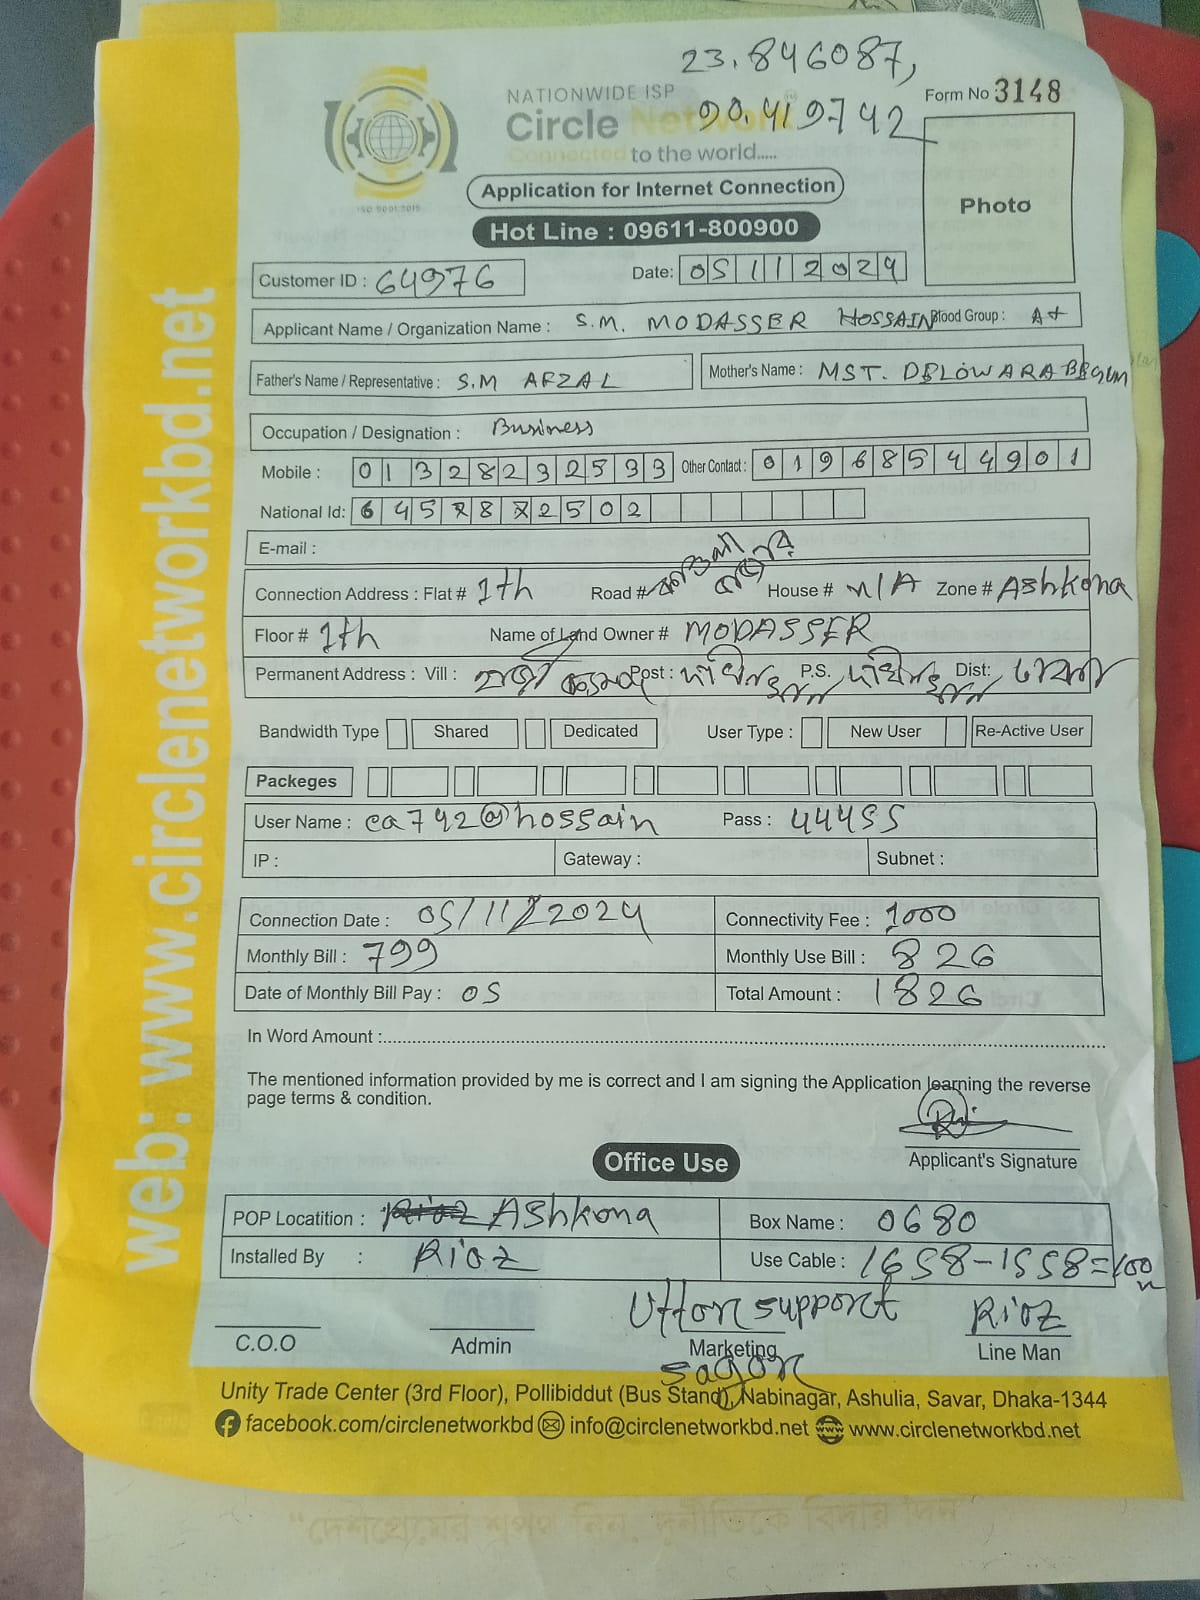 23.846087,
90.419742
NATIONWIDE ISP
Circle Network
Connected to the world.....
Form No 3148
ISO 9001:2015
Application for Internet Connection
Photo
Hot Line : 09611-800900
Customer ID : 64976
Date: 05112024
Applicant Name / Organization Name : S.M. MODASSER HOSSAIN Blood Group : A+
Father's Name / Representative : S.M AFZAL Mother's Name : MST. DELOWARA BEGUM
Occupation / Designation : Business
Mobile : 01328232533 Other Contact : 01968544901
National Id: 6458872502
E-mail :
Connection Address : Flat # 1th Road # House # N/A Zone # Ashkona
Floor # 1th Name of Land Owner # MODASSER
Permanent Address : Vill : হাজী Post : P.S. Dist: ঢাকা
Bandwidth Type Shared Dedicated User Type : New User Re-Active User
Packeges
User Name : ca742@hossain Pass : 44455
IP : Gateway : Subnet :
Connection Date : 05/11/2024 Connectivity Fee : 1000
Monthly Bill : 799 Monthly Use Bill : 826
Date of Monthly Bill Pay : 05 Total Amount : 1826
In Word Amount :
The mentioned information provided by me is correct and I am signing the Application learning the reverse
page terms & condition.
Applicant's Signature
Office Use
POP Locatition : Ashkona Box Name : 0680
Installed By : Rioz Use Cable : 1658-1558=100m
Uttor support Rioz
C.O.O Admin Marketing Line Man
sagor
Unity Trade Center (3rd Floor), Pollibiddut (Bus Stand), Nabinagar, Ashulia, Savar, Dhaka-1344
facebook.com/circlenetworkbd info@circlenetworkbd.net www.circlenetworkbd.net
web: www.circlenetworkbd.net
"দেশপ্রেমের শপথ নিন, দুর্নীতিকে বিদায় দিন"